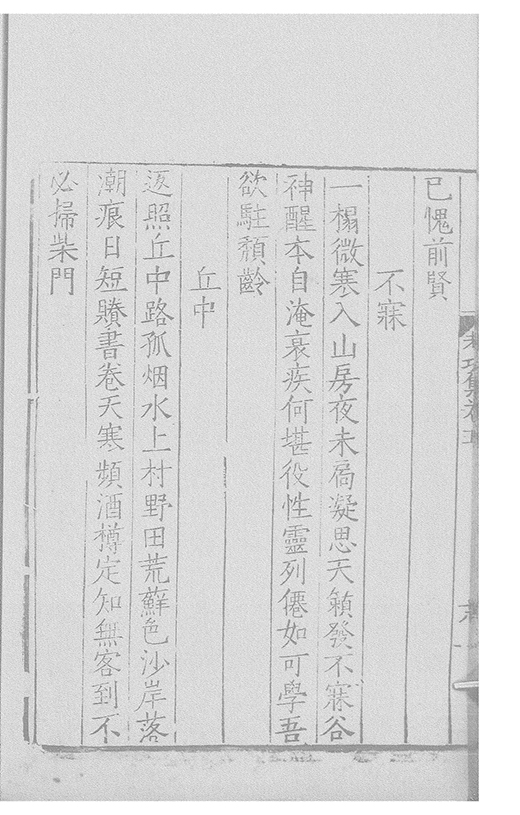 已愧前賢
不寐
一榻微寒入山房夜未扄凝思天籟發不寐谷
神醒本自淹衰疾何堪役性靈列僊如可學吾
欲駐頽齡
丘中
返照丘中路孤烟水上村野田荒蘇色沙岸落
潮痕日短賸書卷天寒頻酒樽定知無客到不
必掃柴門